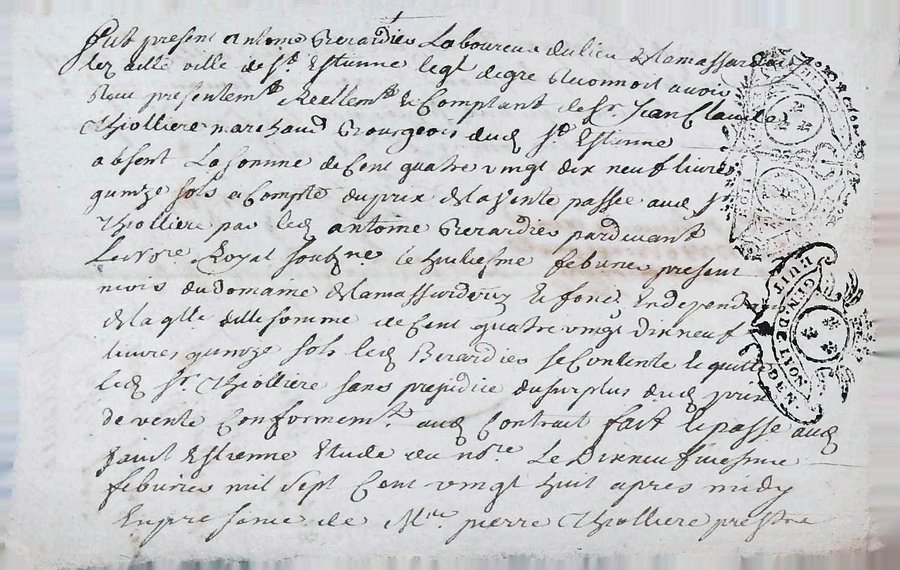 fut present antoine Berardier Laboureur du lieu de la massardiere
lez ditte ville de St. Estienne leql. de gre a avoir
Receu presentemt. Reellemt. & Comptant de Sr. Jean Claude
Thiolliere marchand Bourgeois dud St. Estienne
absent La somme de Cent quatre vingt dix neuf livres
quinze sols a Compte du prix de la Vente passee aud Sr
Thiolliere par led antoine Berardier pardevant
Le nore. Royal soubsne. le huitiesme febvrier present
mois du domaine de la massardiere & fonds En dependant
de laqlle ditte somme de Cent quatre vingt dix neuf
livres quinze sols led Berardier se Contente & quitte
led Sr. Thiolliere sans prejudice du surplus dud prix
de vente Conformemt. aud Contrait fait & passe aud
saint Estienne Etude du nore. Le Dix neufviesme
febvrier mil sept Cent vingt huit apres midy
En presance de Mre. pierre Thiolliere prestre
HUIT
DEN
GEN. DE